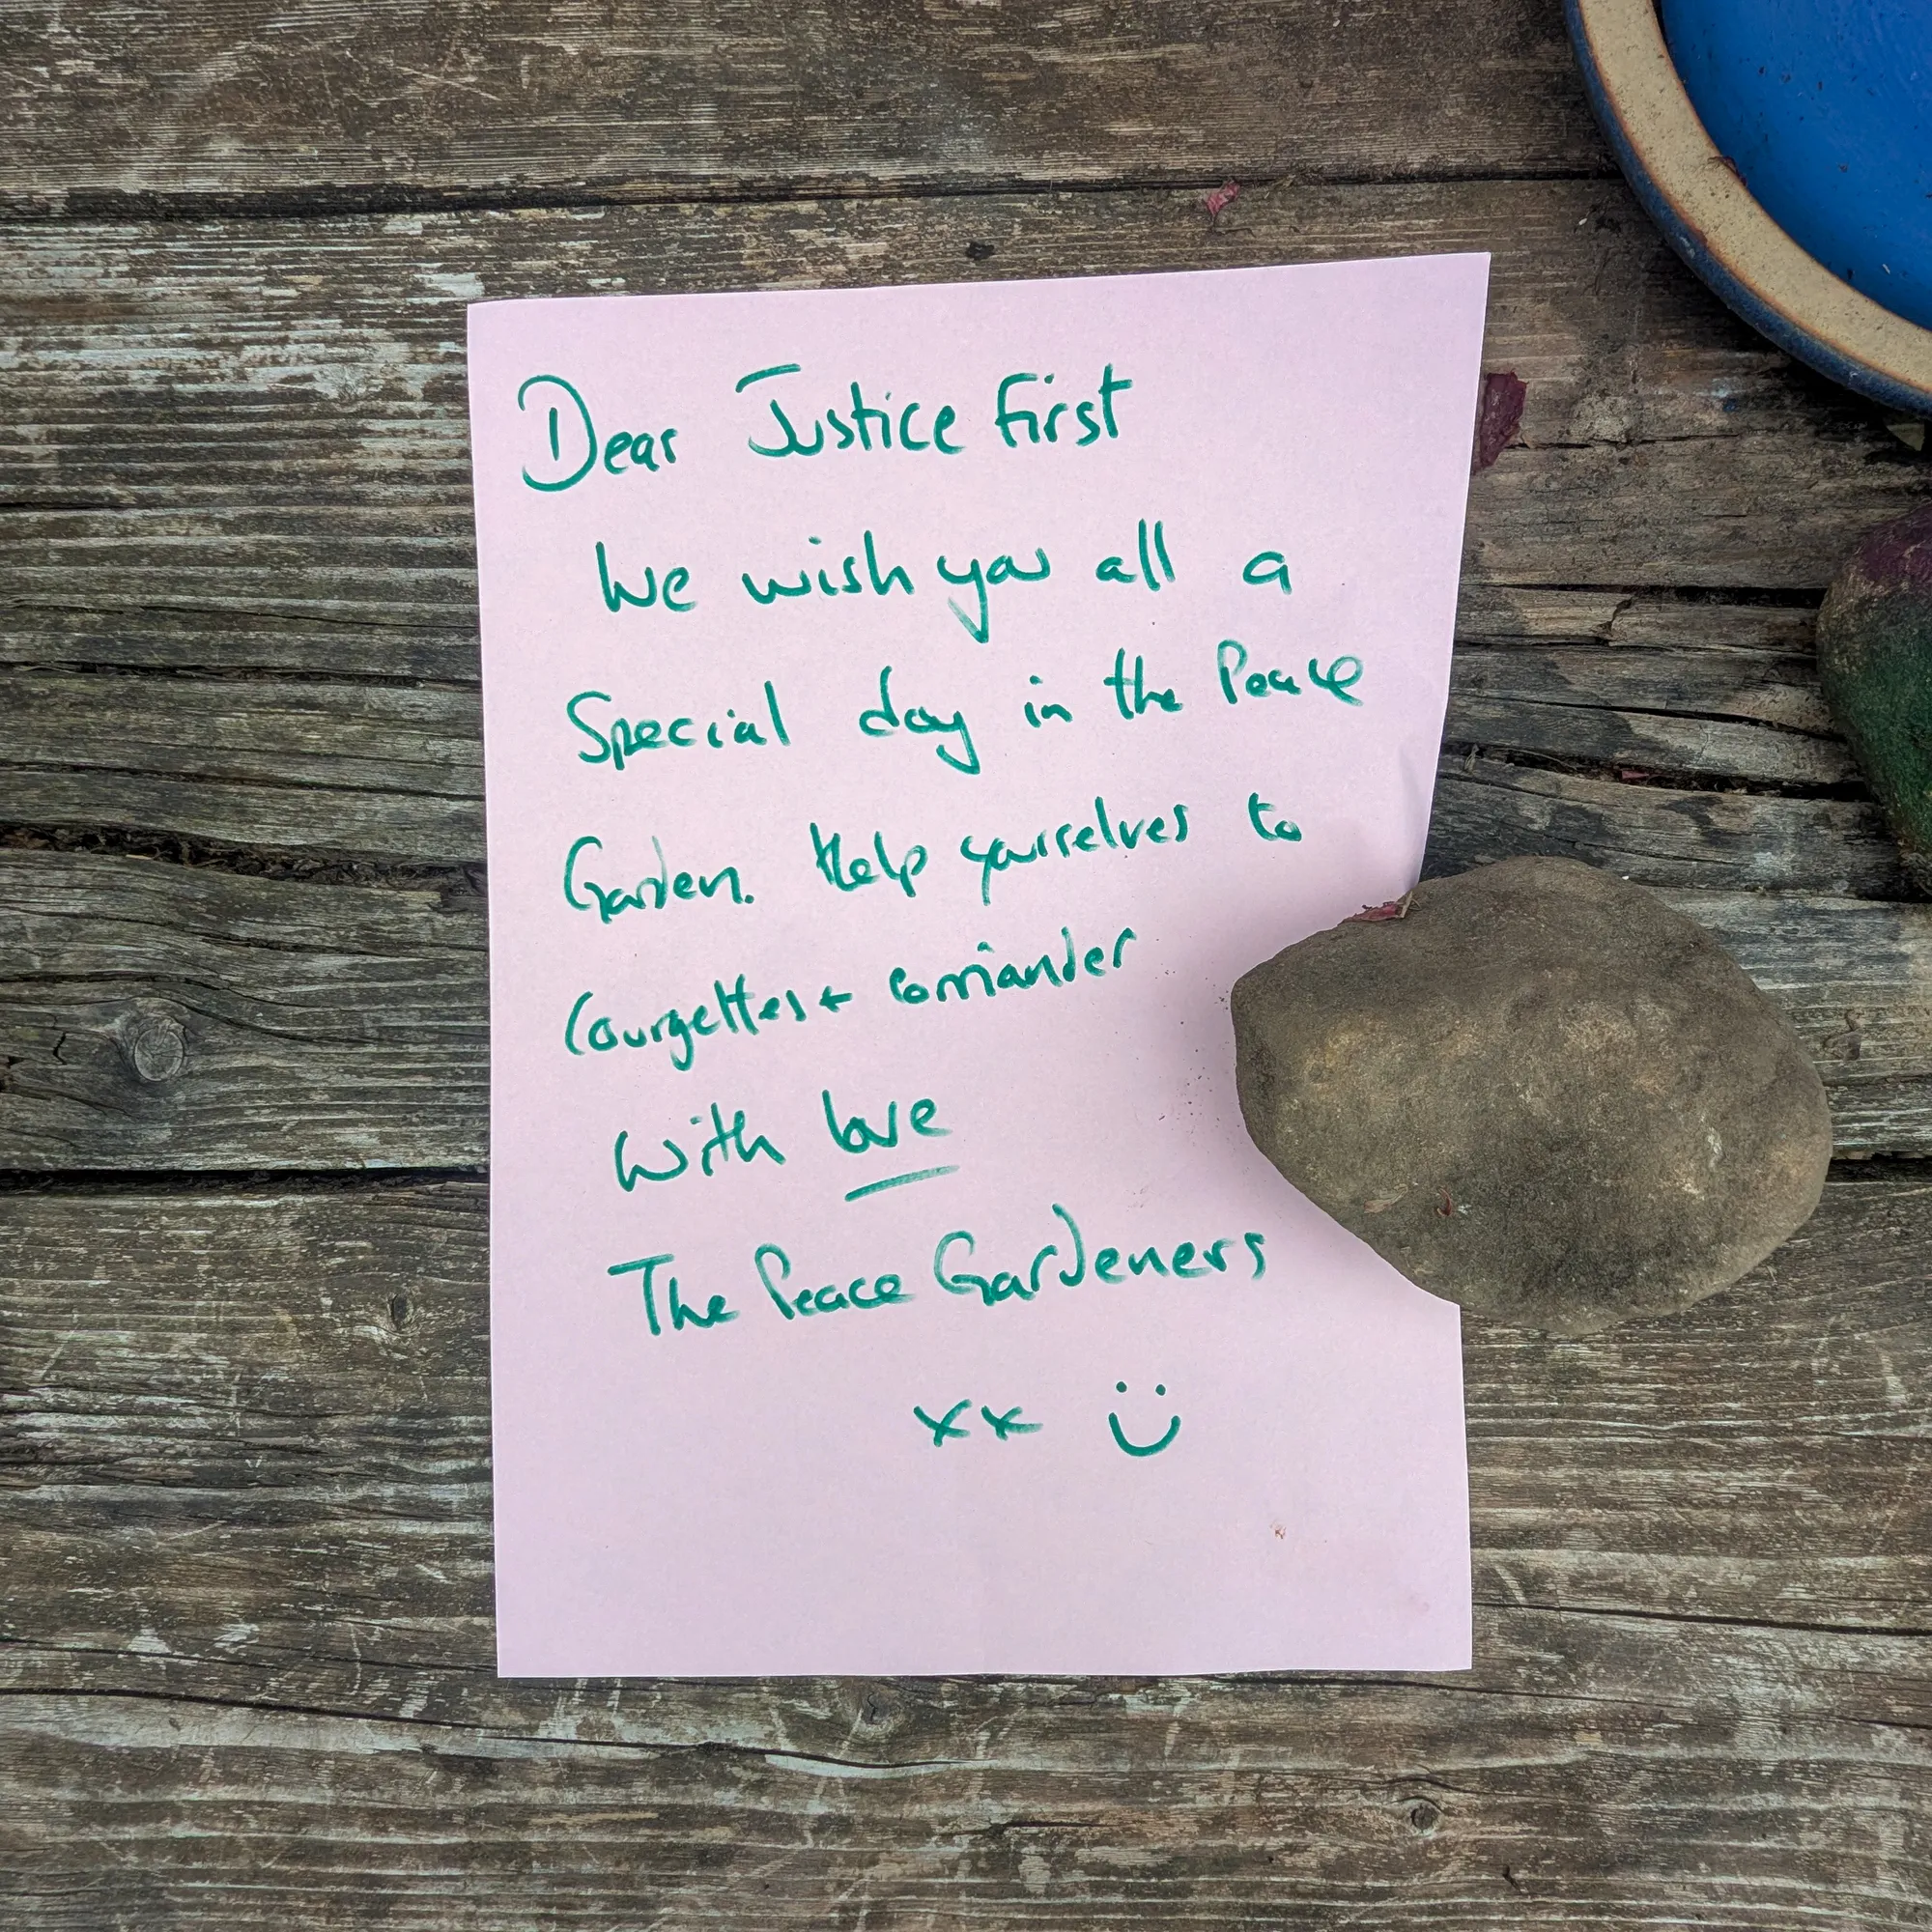 Dear Justice First
We wish you all a
Special day in the Peace
Garden. Help yourselves to
Courgettes + corriander
With love
The Peace Gardeners
xx